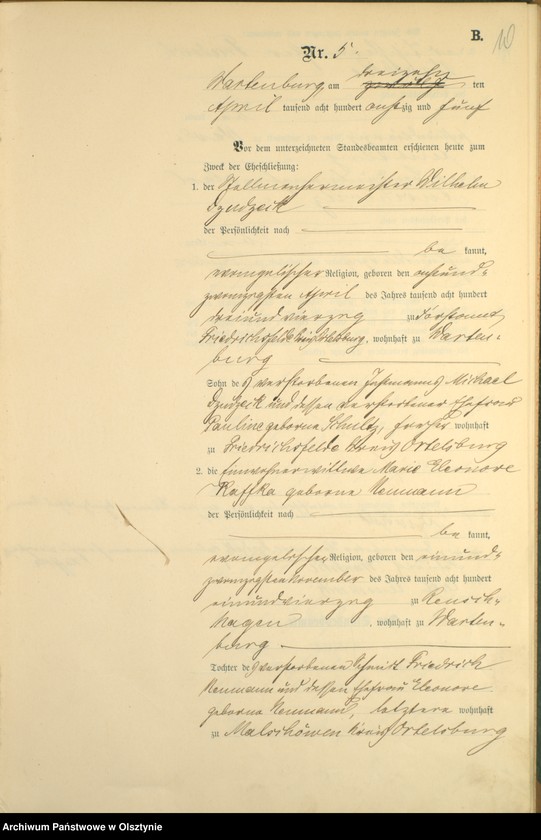 B.
10
Nr. 5.
Wartenburg, am dreizehn ten
April tausend acht hundert achtzig und fünf
Vor dem unterzeichneten Standesbeamten erschienen heute zum
Zweck der Eheschließung:
1. der Stellmachermeister Wilhelm
Dzudzeik
der Persönlichkeit nach
be kannt,
evangelischer Religion, geboren den achtund-
zwanzigsten April des Jahres tausend acht hundert
undvierzig zu Forstamt
Friedrichsfelde Ortelsburg, wohnhaft zu Warten-
burg
Sohn des verstorbenen Michael
Dzudzeik und dessen verstorbener Ehefrau
Pauline geborne Schultz, wohnhaft
zu Friedrichsfelde Kreis Ortelsburg
2. die Einwohnerwittwe Marie Eleonore
Kaffka geborne Neumann
der Persönlichkeit nach
be kannt,
evangelischer Religion, geboren den einund-
zwanzigsten November des Jahres tausend acht hundert
einundvierzig zu
hagen, wohnhaft zu Warten-
burg
Tochter des verstorbenen Friedrich
Neumann und dessen Ehefrau Eleonore
geborne Neumann, letztere wohnhaft
zu Malschöwen Kreis Ortelsburg
Archiwum Państwowe w Olsztynie